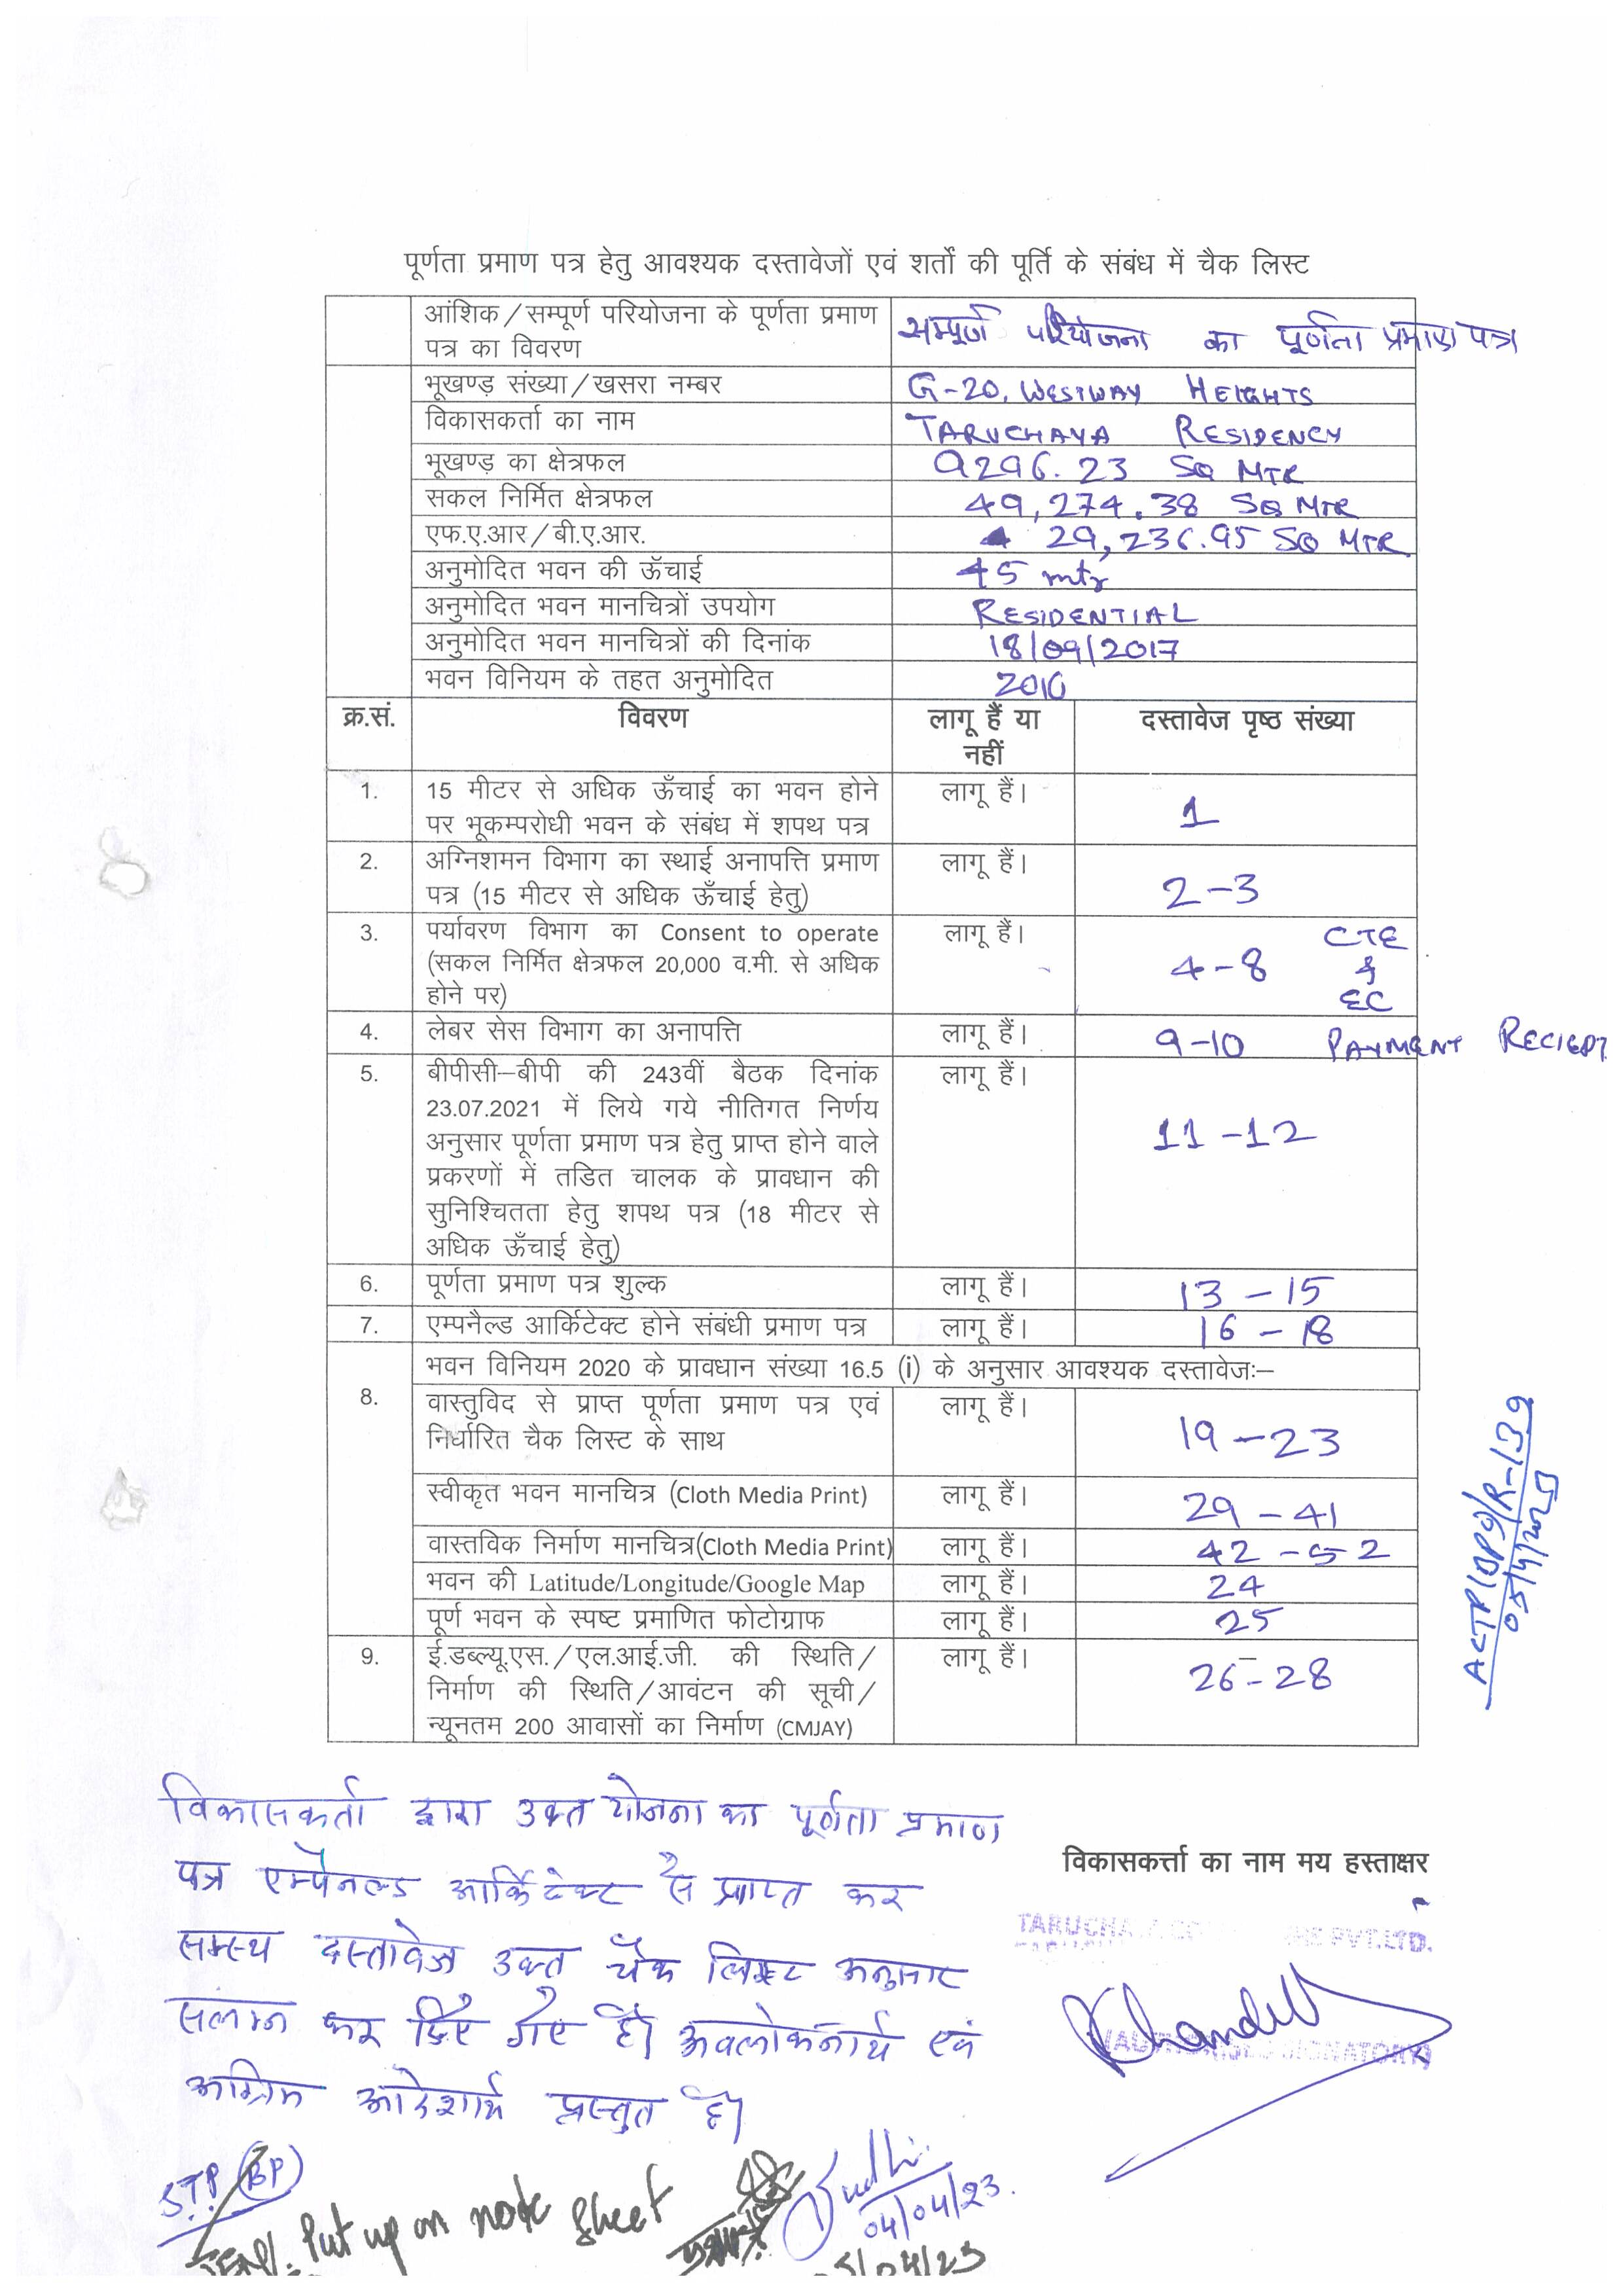 पूर्णता प्रमाण पत्र हेतु आवश्यक दस्तावेजों एवं शर्तों की पूर्ति के संबंध में चैक लिस्ट
आंशिक/सम्पूर्ण परियोजना के पूर्णता प्रमाण पत्र का विवरण सम्पूर्ण परियोजना का पूर्णता प्रमाण पत्र
भूखण्ड़ संख्या/खसरा नम्बर G-20, WESTWAY HEIGHTS
विकासकर्ता का नाम TARUCHAYA RESIDENCY
भूखण्ड़ का क्षेत्रफल 9296.23 SQ MTR
सकल निर्मित क्षेत्रफल 49,274.38 SQ MTR
एफ.ए.आर/बी.ए.आर. 29,236.95 SQ MTR
अनुमोदित भवन की ऊँचाई 45 mtr
अनुमोदित भवन मानचित्रों उपयोग RESIDENTIAL
अनुमोदित भवन मानचित्रों की दिनांक 18/09/2017
भवन विनियम के तहत अनुमोदित 2010
क्र.सं. विवरण लागू हैं या नहीं दस्तावेज पृष्ठ संख्या
1. 15 मीटर से अधिक ऊँचाई का भवन होने
पर भूकम्परोधी भवन के संबंध में शपथ पत्र लागू हैं। 1
2. अग्निशमन विभाग का स्थाई अनापत्ति प्रमाण
पत्र (15 मीटर से अधिक ऊँचाई हेतु) लागू हैं। 2-3
3. पर्यावरण विभाग का Consent to operate
(सकल निर्मित क्षेत्रफल 20,000 व.मी. से अधिक
होने पर) लागू हैं। 4-8 CTE & EC
4. लेबर सेस विभाग का अनापत्ति लागू हैं। 9-10 PAYMENT RECIEPT
5. बीपीसी–बीपी की 243वीं बैठक दिनांक
23.07.2021 में लिये गये नीतिगत निर्णय
अनुसार पूर्णता प्रमाण पत्र हेतु प्राप्त होने वाले
प्रकरणों में तडित चालक के प्रावधान की
सुनिश्चितता हेतु शपथ पत्र (18 मीटर से
अधिक ऊँचाई हेतु) लागू हैं। 11-12
6. पूर्णता प्रमाण पत्र शुल्क लागू हैं। 13-15
7. एम्पनैल्ड आर्किटेक्ट होने संबंधी प्रमाण पत्र लागू हैं। 16-18
8. भवन विनियम 2020 के प्रावधान संख्या 16.5 (i) के अनुसार आवश्यक दस्तावेजः–
वास्तुविद से प्राप्त पूर्णता प्रमाण पत्र एवं
निर्धारित चैक लिस्ट के साथ लागू हैं। 19-23
स्वीकृत भवन मानचित्र (Cloth Media Print) लागू हैं। 29-41
वास्तविक निर्माण मानचित्र(Cloth Media Print) लागू हैं। 42-52
भवन की Latitude/Longitude/Google Map लागू हैं। 24
पूर्ण भवन के स्पष्ट प्रमाणित फोटोग्राफ लागू हैं। 25
9. ई.डब्ल्यू.एस./एल.आई.जी. की स्थिति/
निर्माण की स्थिति/आवंटन की सूची/
न्यूनतम 200 आवासों का निर्माण (CMJAY) लागू हैं। 26-28
विकासकर्ता द्वारा उक्त योजना का पूर्णता प्रमाण
पत्र एम्पेनल्ड आर्किटेक्ट से प्राप्त कर
समस्थ दस्तावेज उक्त चैक लिस्ट अनुसार
सलंग्न कर दिए गए है। अवलोकनार्थ एवं
अग्रिम आदेशार्थ प्रस्तुत है।
विकासकर्त्ता का नाम मय हस्ताक्षर
PVT.LTD.
STP (BP)
Put up on note sheet
04/04/23.